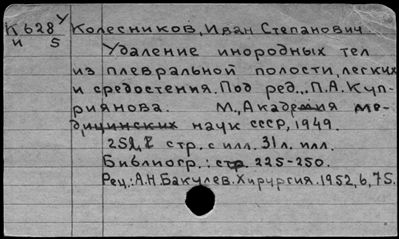 К 628 У Колесников, Иван Степанович.
и 5
Удаление инородных тел
из плевральной полости, легких
и средостения. Под ред., П.А. Куп-
риянова. М., Академия ме-
дицинских наук СССР, 1949.
стр. с илл. 31 л. илл.
Библиогр.: стр. 225-250.
Рец.: А.Н. Бакулев. Хирургия. 1952, 6, 75.